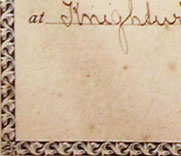 at Knightw